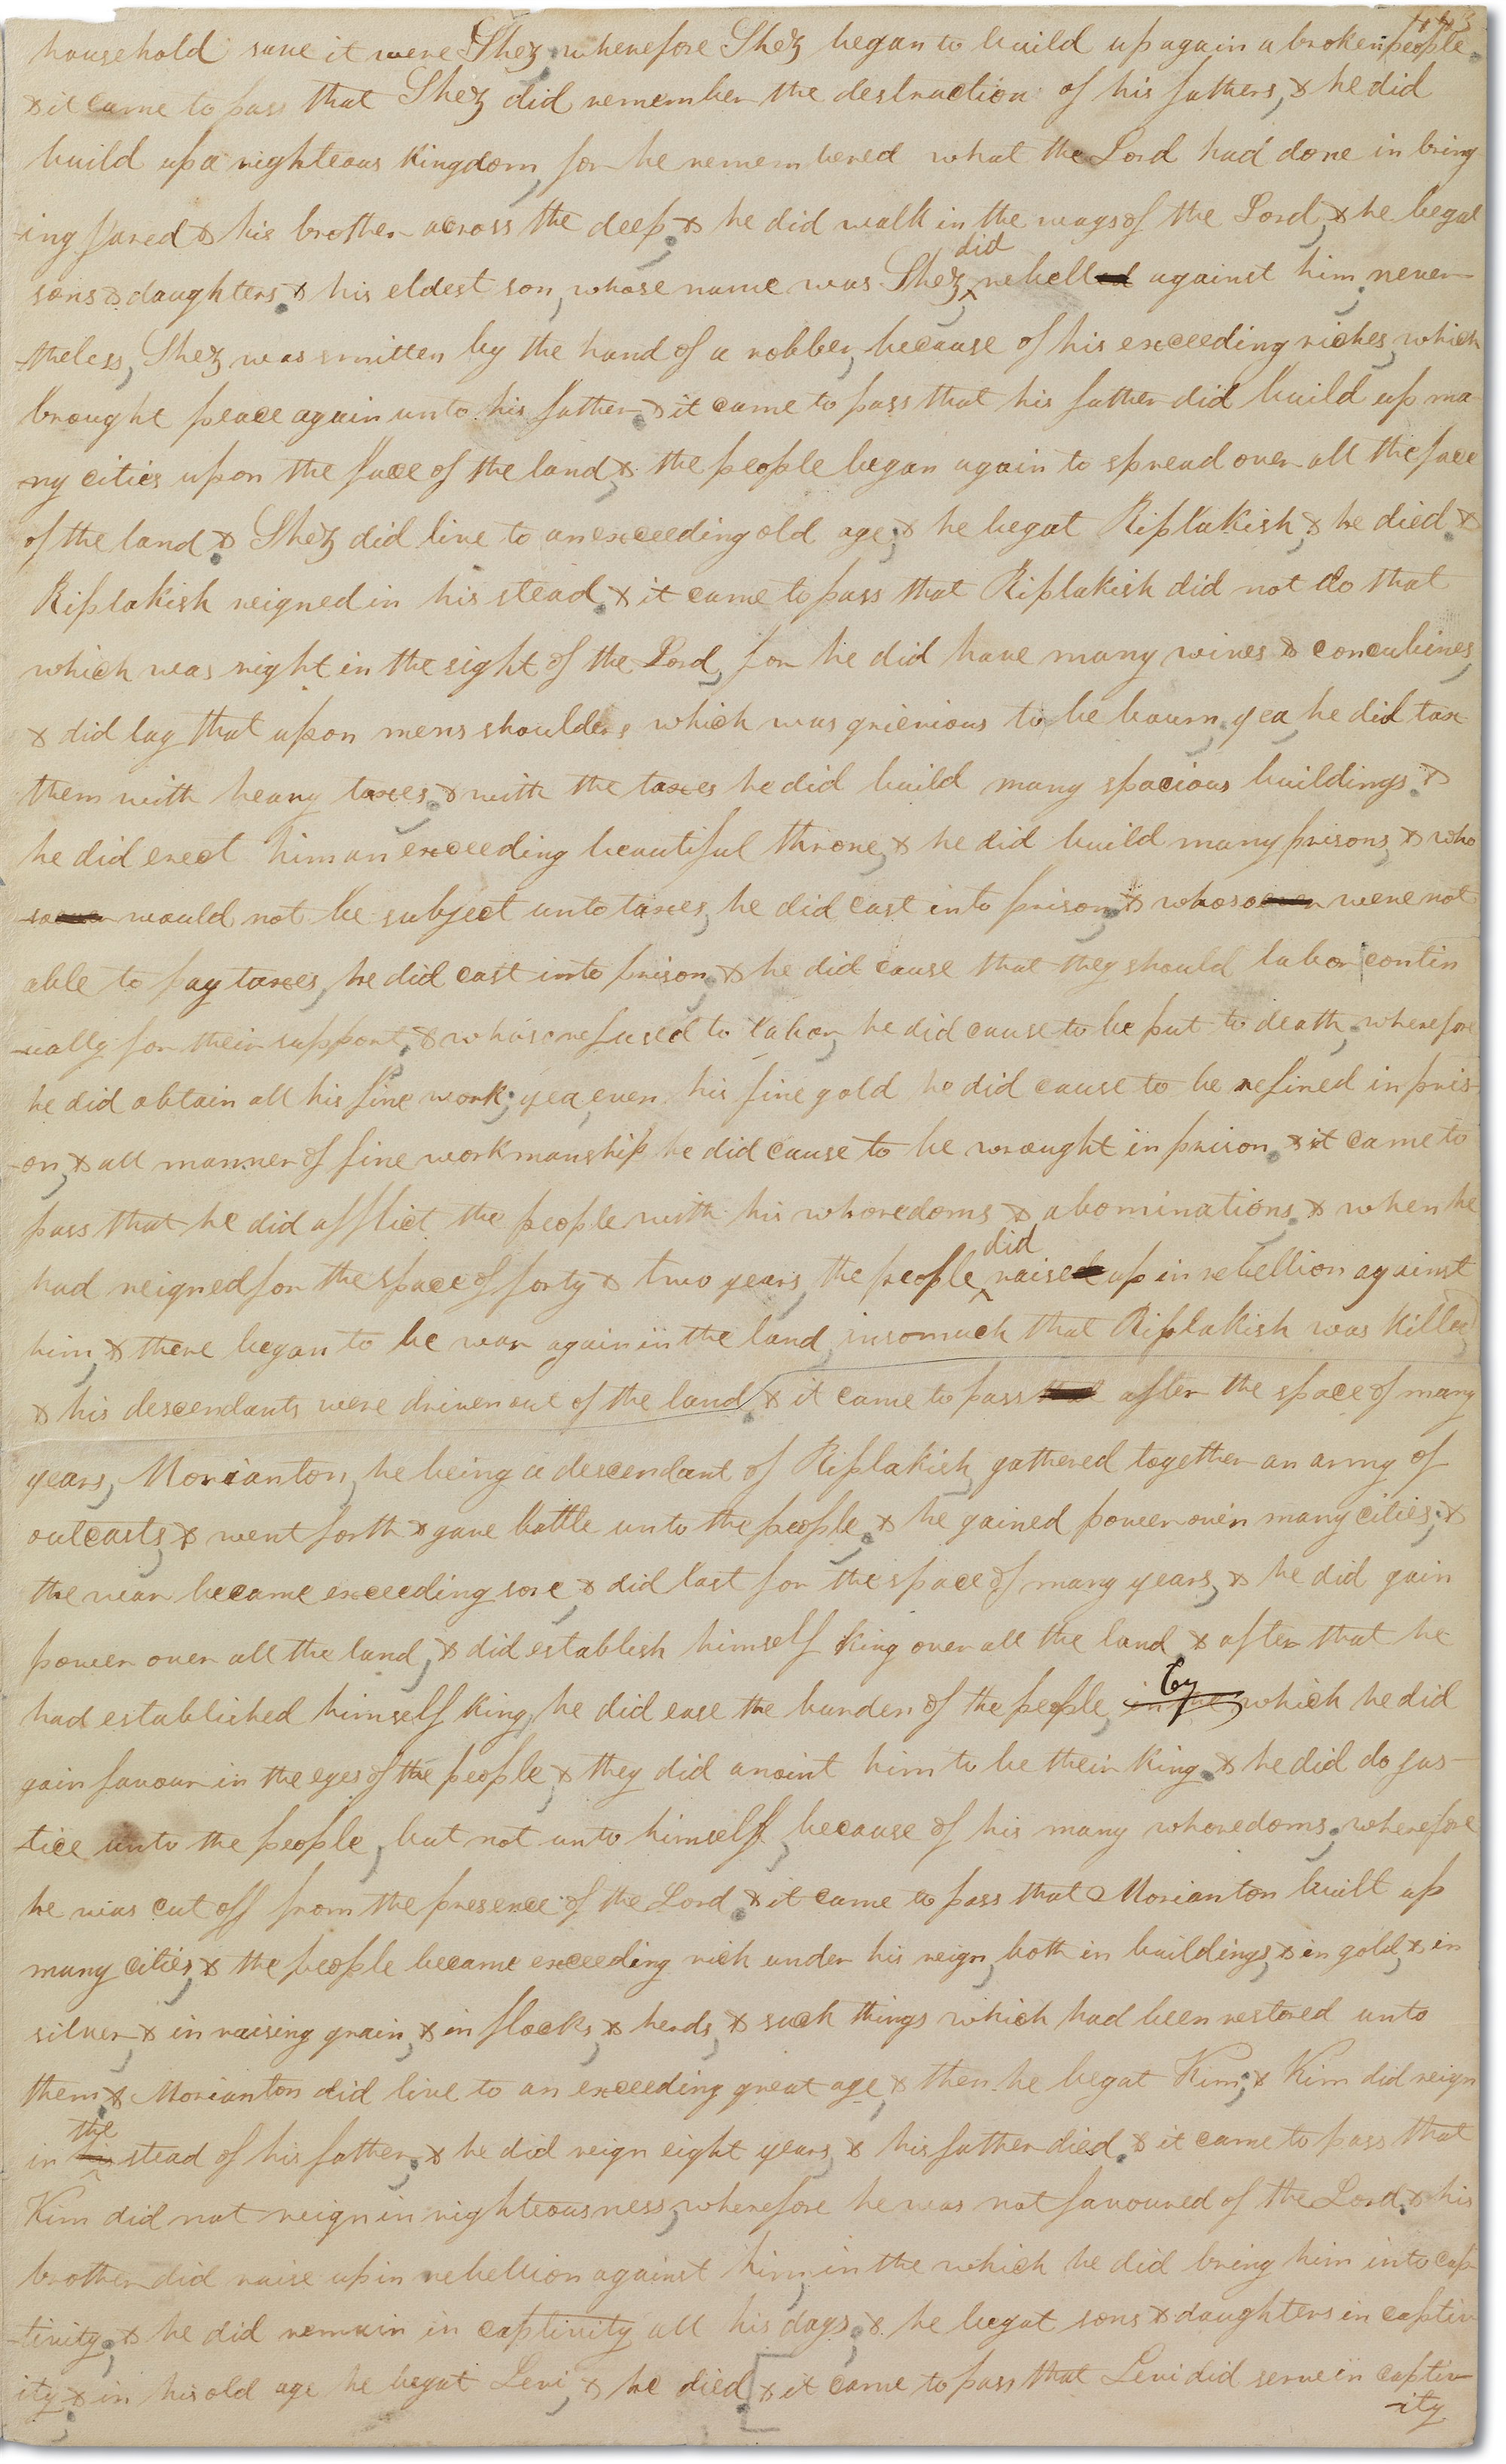 household save it were Shez wherefore Shez began to build up again a broken people.
& it came to pass that Shez did remember the destruction of his fathers, & he did
build up a righteous kingdom, for he remembered what the Lord had done in bring
-ing Jared & his brother across the deep. & he did walk in the ways of the Lord, & he begat
did
sons & daughters. & his eldest son, whose name was Shez, ^ rebelled against him, never-
-theless, Shez was smitten by the hand of a robber, because of his exceeding riches, which
brought peace again unto his father. & it came to pass that his father did build up ma-
-ny cities upon the face of the land, & the people began again to spread over all the face
of the land. & Shez did live to an exceeding old age; & he begat Riplakish, & he died. &
Riplakish reigned in his stead. & it came to pass that Riplakish did not do that
which was right in the sight of the Lord, for he did have many wives & concubines,
& did lay that upon mens shoulders which was grievious to be bourn, yea, he did tax
them with heavy taxes, & with the taxes he did build many spacious buildings. &
he did erect him an exceeding beautiful throne, & he did build many prisons, & who
soever would not be subject unto taxes, he did cast into prison, & whosoever were not
able to pay taxes, he did cast into prison, & he did cause that they should labor contin
-ually for their support, & whoso refused to labor, he did cause to be put to death, wherefore
he did obtain all his fine work, yea, even his fine gold he did cause to be refined in pris-
-on, & all manner of fine workmanship he did cause to be wrought in prison. & it came to
pass that he did afflict the people with his whoredoms & abominations. & when he
did
had reigned for the space of forty & two years, the people ^ raise up in rebellion against
him, & there began to be war again in the land, insomuch that Riplakish was killed,
& his descendants were driven out of the land. & it came to pass that after the space of many
years, Morianton, he being a descendant of Riplakish, gathered together an army of
outcasts, & went forth & gave battle unto the people, & he gained power over many cities; &
the war became exceeding sore, & did last for the space of many years, & he did gain
power over all the land, & did establish himself King over all the land, & after that he
by
had established himself King, he did ease the burden of the people, which he did
gain favour in the eyes of the people, & they did anoint him to be their King. & he did do jus-
-tice unto the people, but not unto himself, because of his many whoredoms, wherefore
he was cut off from the presence of the Lord. & it came to pass that Morianton built up
many cities, & the people became exceeding rich under his reign, both in buildings, & in gold, & in
silver, & in raising grain, & in flocks, & herds, & such things which had been restored unto
them. & Morianton did live to an exceeding great age, & then he begat Kim; & Kim did reign
the
in his stead of his father. & he did reign eight years, & his father died. & it came to pass that
Kim did not reign in righteousness, wherefore he was not favoured of the Lord. & his
brother did raise up in rebellion against him, in the which he did bring him into cap
-tivity, & he did remain in captivity all his days, & he begat sons & daughters in captiv
ity, & in his old age he begat Levi, & he died & it came to pass that Levi did serve in captiv
-ity